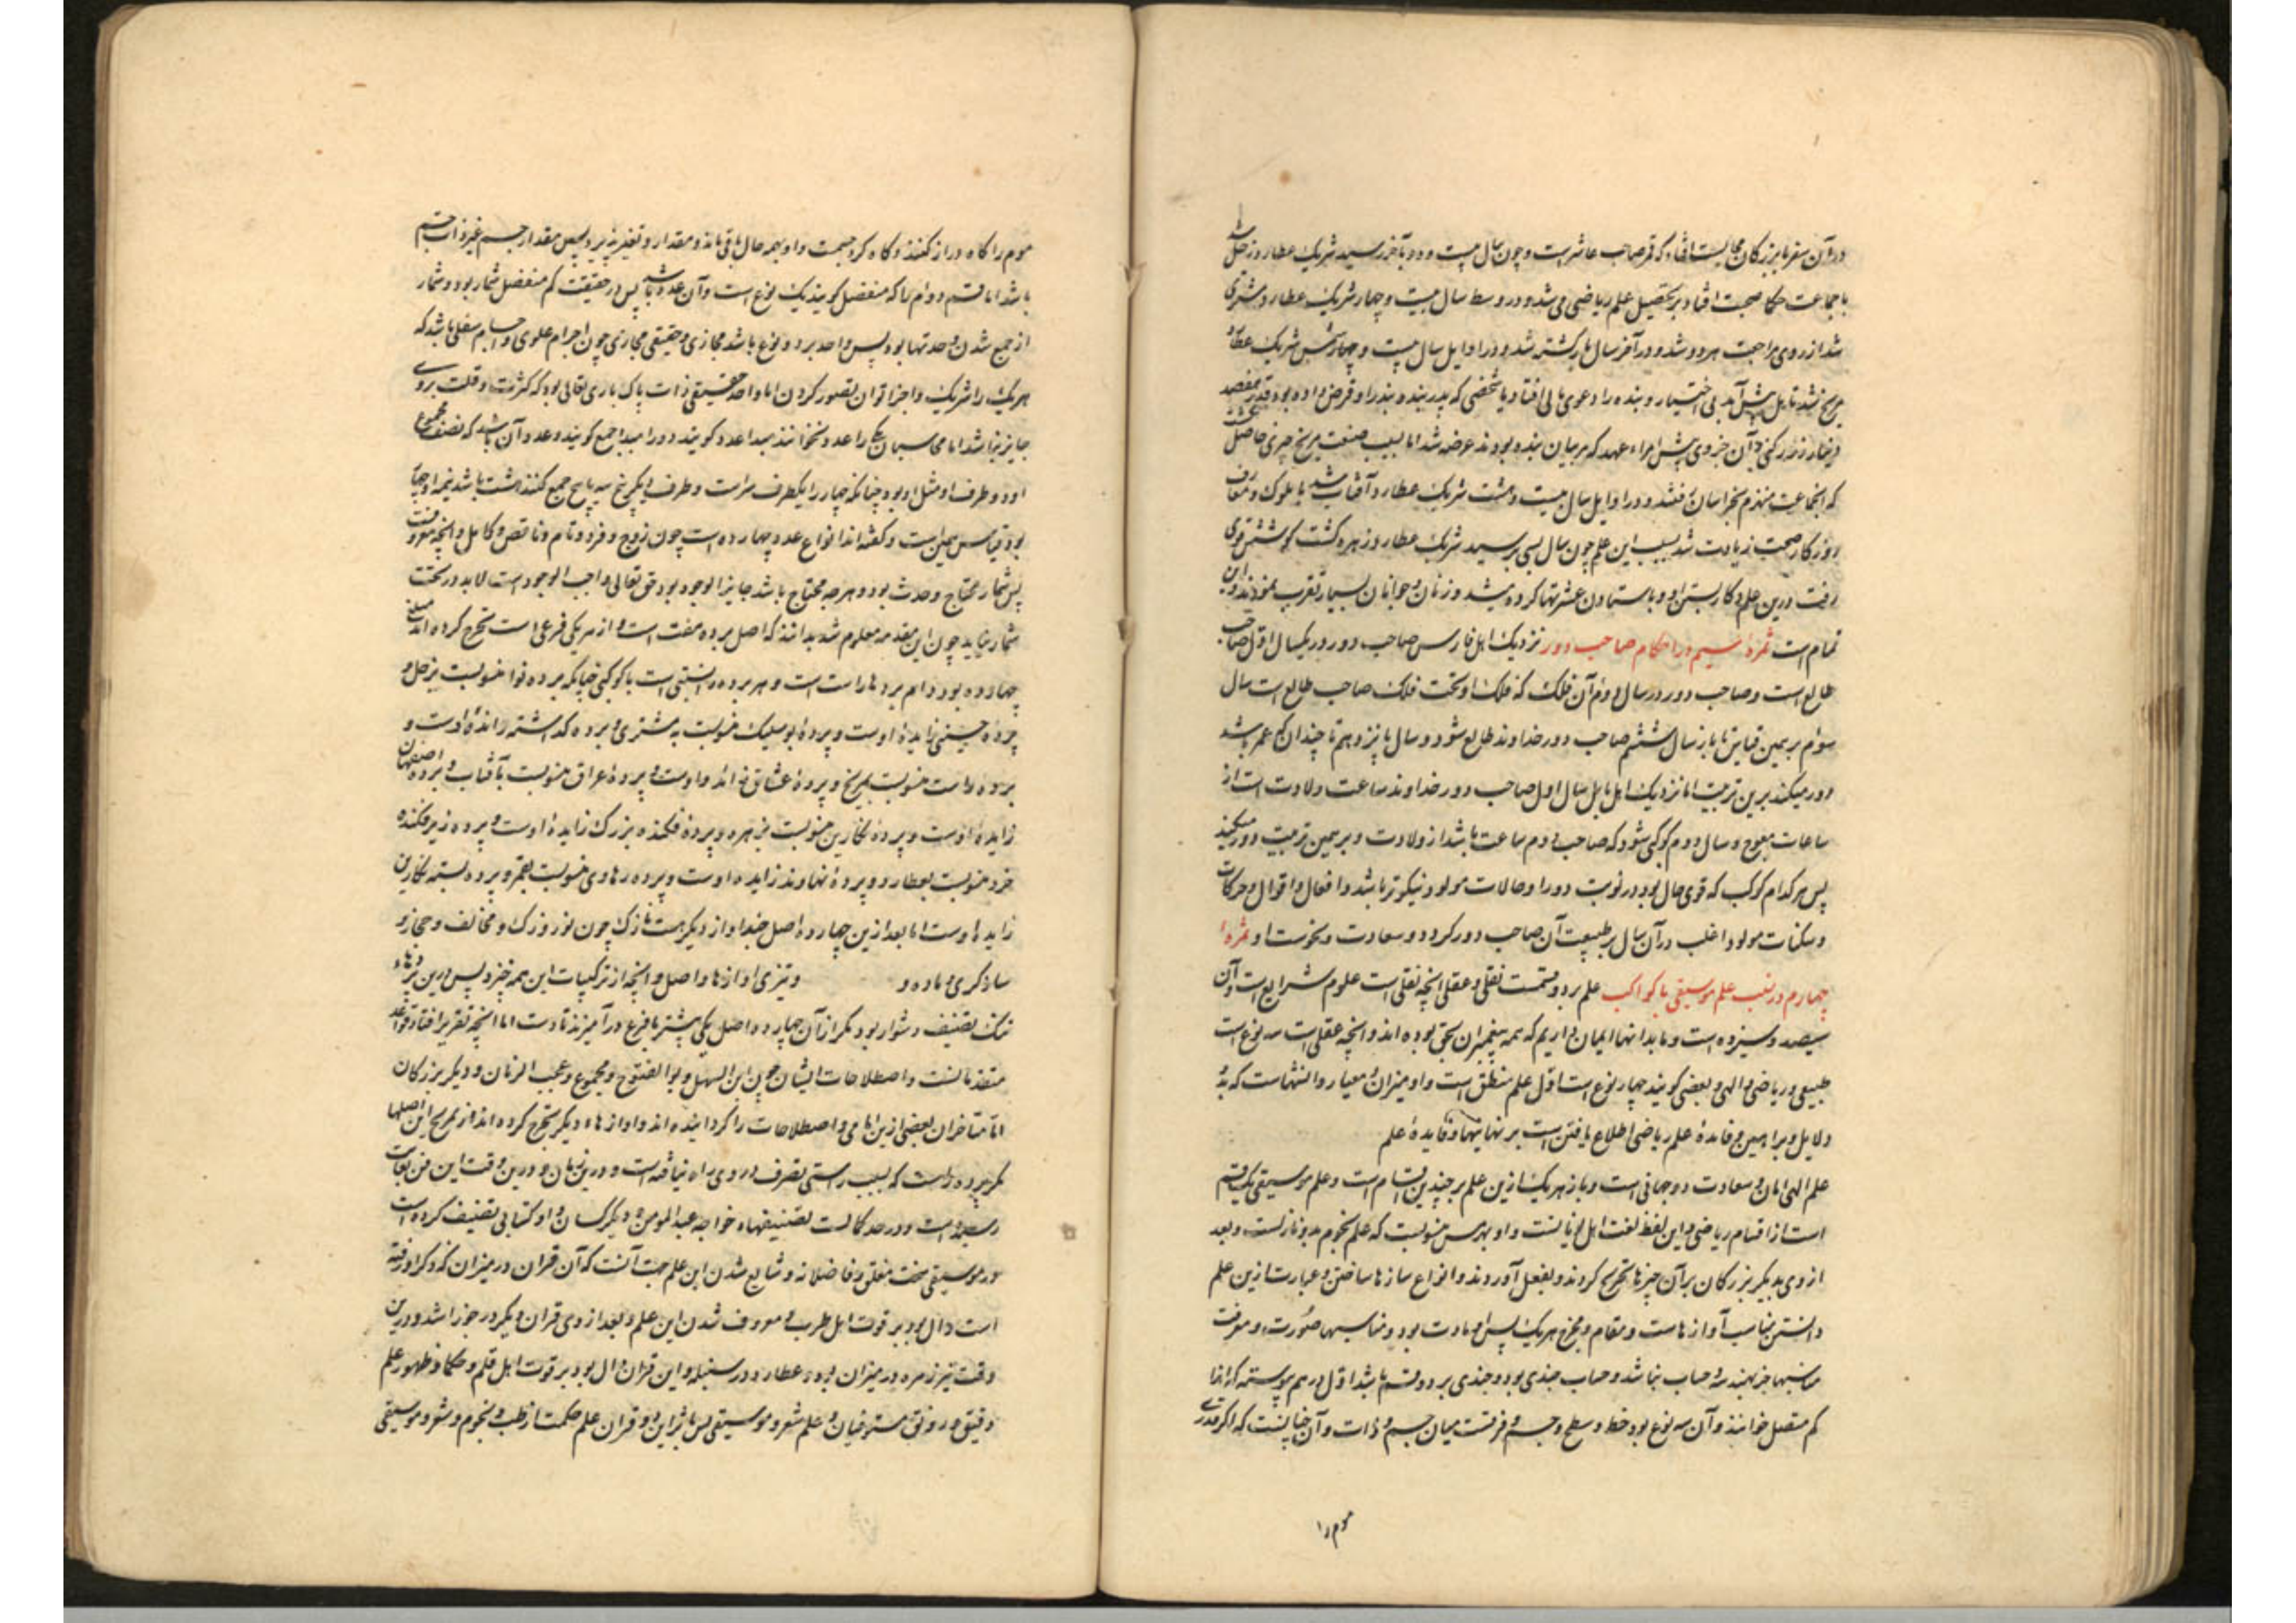 در آن سفر با بزرکان مجالست افتاد که قمر صاحب عاشرست و چون سال بیست و دو بآخر رسید شریک عطارد زحل شد
با جماعت حکما صحبت افتاد و تحصیل علم ریاضی می شد و در وسط سال بیست و چهار شریک عطارد مشتری
شد از روی مراجعت هر دو شد و در آخر سال باز کشته شد و در اوایل سال بیست و شریک عطارد
مریخ شد تا بل پیش آمد بی اختیار و بنده را دعوی مالی افتاد با شخصی که پدر بنده بدو قرض داده بود قدر مقصد
دینار زر رکنی و آن جزوی پیش امراء عهد که مربیان بنده بودند عرضه شد اما بسبب ضعف مریخ چیزی حاصل نکشت
که آنجماعت منهزم بخراسان رفتند و در اوایل سال بیست و هشت شریک عطارد آفتاب شد با ملوک و معارف
روزکار صحبت زیادت شد بسبب این علم چون سال بسی برسید شریک عطارد زهره کشت کوشش قوی
رفت درین علم و کار بستن او و باستادن عشرتها کرده میشد و زنان و جوانان بسیار تقرب نمودند و این
تمام است ثمرهٔ سیم در احکام صاحب دور نزدیک اهل فارس صاحب دور در یکسال اول صاحب
طالع است و صاحب دور در سال دوم آن فلک که فلک او تحت فلک صاحب طالع است سال
سوم بر همین قیاس تا باز سال ششم صاحب دور خداوند طالع شود و سال پانزدهم تا چندان که عمر باشد
دور میکند برین ترتیب اما نزدیک اهل بابل سال اول صاحب دور خداوند ساعت ولادت است از
ساعات معوج و سال دوم کوکبی شود که صاحب دوم ساعت باشد از ولادت و بر همین ترتیب دور میکند
پس هر کدام کوکب که قوی حال بود در نوبت دور او حالات مولود نیکوتر باشد و افعال و اقوال و حرکات
و سکنات مولود اغلب در آن سال بر طبیعت آن صاحب دور کردد و سعادت و نحوست او ثمرهٔ
چهارم در نسب علم موسیقی با کواکب علم بر دو قسمت نقلی و عقلی آنچه نقلی است علوم شرایع است و آن
سیصد و سیزده است و ما بدانها ایمان داریم که همه پیغمبران بحق بوده اند و آنچه عقلی است سه نوع است
طبیعی و ریاضی و الهی و بعضی کویند چهار نوع است اول علم منطق است و او میزان و معیار دانشهاست که بدو
دلایل و براهین و فایدهٔ علم ریاضی اطلاع یافتن است بر نهانیها و فایدهٔ علم
علم الهی امان و سعادت دو جهانی است و باز هر یک ازین علم بر چندین اقسام است و علم موسیقی یک قسم
است از اقسام ریاضی و این لفظ لغت اهل یونانست و او بهرمس منسوبست که علم نجوم بدو نازلست و بعد
از وی بدیکر بزرکان بر آن چیزها تخریج کردند و بفعل آوردند و انواع سازها ساختن و عبارت ازین علم
دانستن تناسب آوازهاست و مقام و مخرج هر یک پس او مادت بود و مناسبها صورت و معرفت
مناسبها جز بهندسه و حساب نباشد و حساب چندی بود و چندی بر دو قسم باشد اول در هم پیوسته که آنرا
کم متصل خوانند و آن سه نوع بود خط و سطح و جسم و فرقست میان جسم و ذات و آن چنانست که اکر قدری
موم را
موم را کاه دراز کنند و کاه کرد جسمت و او بهمه حال باقی ماند و مقدار و تغیر پذیرد پس مقدار جسم غیر ذات جسم
باشد اما قسم دوم را که منفصل کویند یک نوع است و آن عدد باشد پس در حقیقت کم منفصل شمار بود و شمار
از جمع شدن وحدتها بود پس واحد بر دو نوع باشد مجازی و حقیقی مجازی چون اجرام علوی و اجسام سفلی باشد که
هر یک را شریک و اجزا توان تصور کردن اما واحد حقیقی ذات پاک باری تعالی بود که کثرت و قلت بر وی
جایز نباشد اما محاسبان یکی را عدد نخوانند مبدا عدد کویند و دو را مبدا جمع کویند و عدد آن باشد که نصف مجموع
او دو طرف او مثل او بود چنانکه چهار را یکطرف سه است و طرف دیکر پنج سه با پنج جمع کنند هشت باشد نیمه او چهار
بود قیاس همین است و کفته اند انواع عدد چهارده است چون زوج و فرد و تام و ناقص و کامل و آنچه معروفست
پس شمار محتاج وحدت بود و هر چه محتاج باشد جایز الوجود بود حق تعالی واجب الوجود است لابد در تحت
شمار نیاید چون این مقدمه معلوم شد بدانند که اصل پرده هفت است و از هر یکی فرعی است تخریج کرده اند
چهارده بود و ام پردها راست است و هر پرده را نسبتی است با کوکبی چنانکه پرده نوا منسوبست بزحل و
پردهٔ حسینی زایدهٔ اوست و پردهٔ بوسلیک منسوبست به مشتری و پرده زاندهٔ اوست و
پرده راست منسوبست بمریخ و پردهٔ عشاق اوست و پردهٔ عراق منسوبست بآفتاب و پرده اصفهان
زایدهٔ اوست و پردهٔ نکارین منسوبست بزهره و پردهٔ بزرک زایدهٔ اوست و پرده زیرفکنده
خرد منسوبست بعطارد و پردهٔ نهاوند زایدهٔ اوست و پرده رهاوی منسوبست بقمر و پرده بسته نکارین
زایدهٔ اوست اما بعد ازین چهارده اصل چند آواز دیکر هست نازک چون نوروز بزرک و مخالف و حجاز و
سازکری و ماده و و تیزی آوازها و اصل و آنچه از ترکیبات این همه خیزد پس درین پردهاء
تصنیف دشوار بود مکر از آن چهارده اصل یکی بیشتر با فرع درآمیزند تا دست اما آنچه تقریر افتاد قواعد
متقدمانست و اصطلاحات ایشان چون ابن السهل و بوالفتوح و مجموع و عجب الزمان و دیکر بزرکان
اما متاخران بعضی ازین اسامی و اصطلاحات را کردانیده اند و آوازهاء دیکر تخریج کرده اند از این اصلها
مکر پرده راست که بسبب راستی تصرف در وی راه نیافته است و درین زمان و درین وقت این فن بغایت
رسیده است و در حد کمالست تصنیفهاء خواجه عبدالمومن و دیکر کسان و او کتابی تصنیف کرده است
در موسیقی سخت مغلق و فاضلانه و شایع شدن این علم جهت آنست که آن قران در میزان که ذکر او رفته
است دال بود بر قوت اهل طرب و معروف شدن این علم و بعد از وی قران دیکر در جوزا شد و درین
وقت نیز زهره در میزان بود و عطارد در سنبله و این قران دال بود بر قوت اهل قلم و حکما و ظهور علم
دقیق و رونق مستوفیان و علم شعر و موسیقی پس تاثر این دو قران علم حکمت از طب و نجوم و شعر و موسیقی